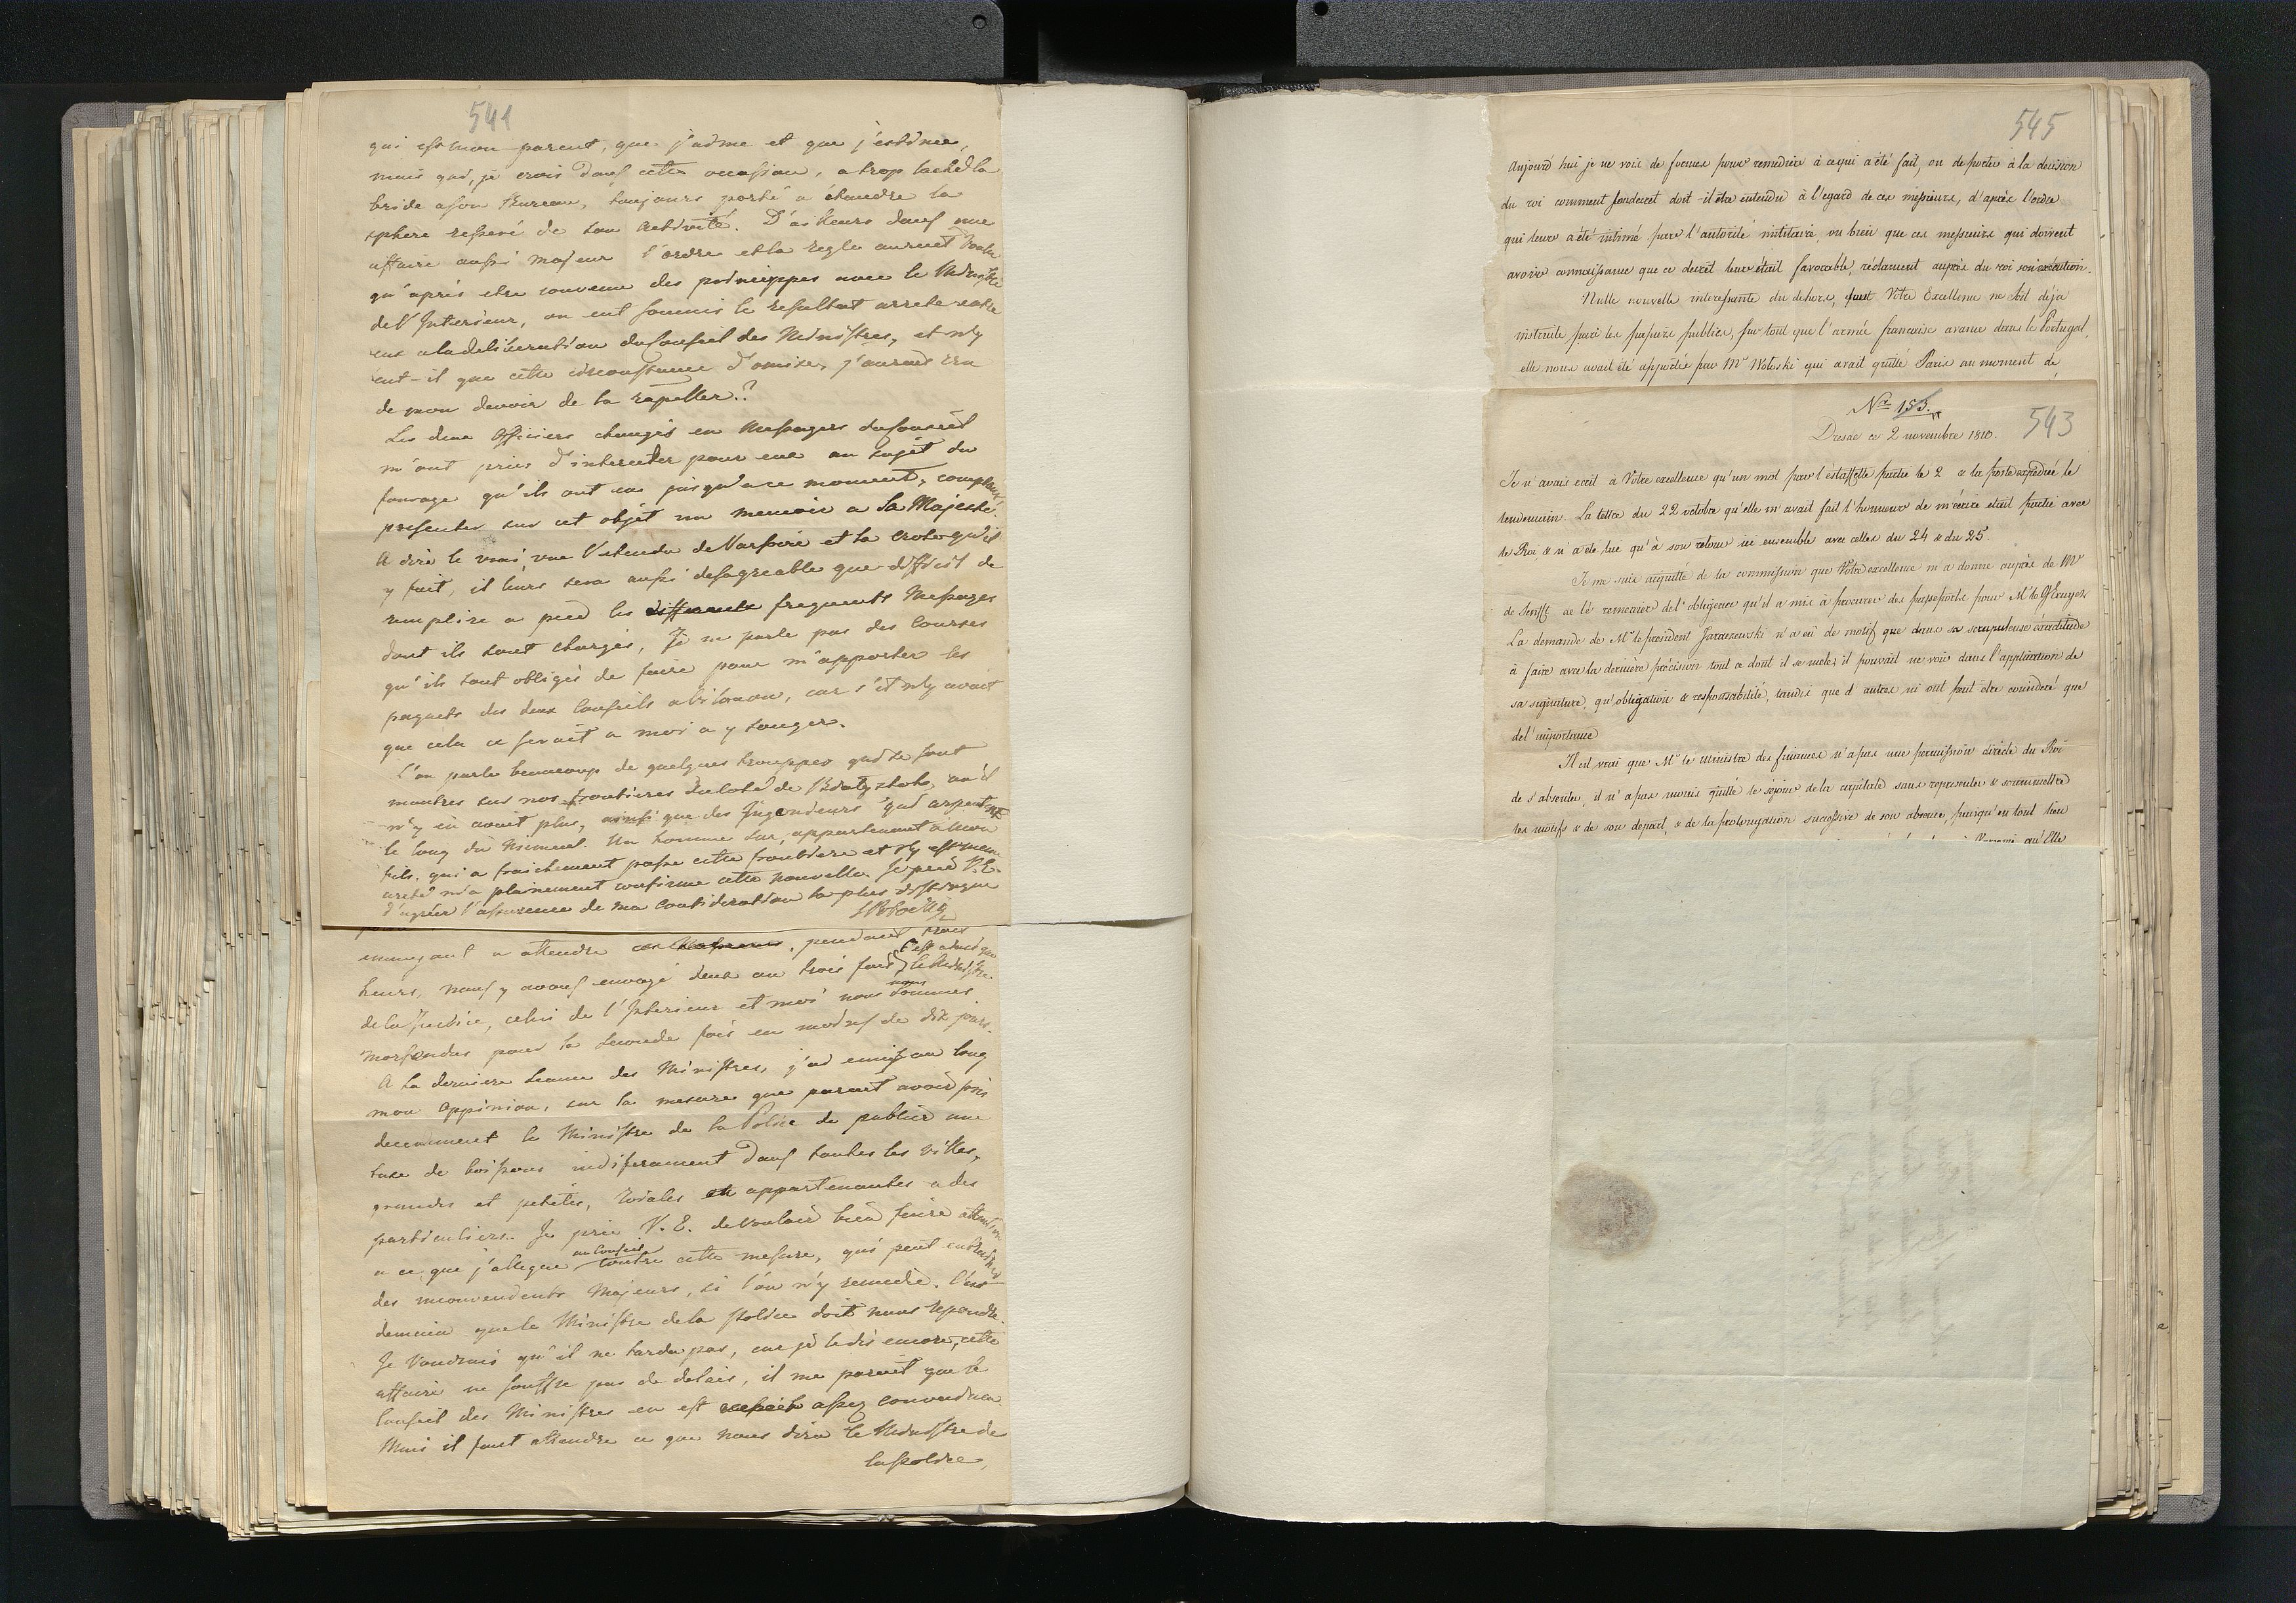 541
qui est mon parent, que j'aime et que j'estime,
mais qui, je crois dans cette occasion, a trop laché la
bride a son Bureau, toujours porté a étendre la
sphere de son activité. D'ailleurs dans une
affaire aussi majeur l'ordre et la regle auroit voulu
qu'après etre convenu des princippes avec le Ministre
de l'Interieur, on eut soumis le resultat arreté entre
eux a la deliberation du Conseil des Ministres, et n'y
eut-il que cette circonstance d'omise, j'aurais cru
de mon devoir de la rapeller.
Les deux Officiers changés en Messagers du Conseil
m'ont priés d'interceder pour eux au sujet du
fourage qu'ils ont eu jusqu'a ce moment,
presenter sur cet objet un memoir a Sa Majesté.
A dire le vrai, vue l'etendu de Varsovie et la crote qu'il
y fait, il leurs sera aussi desagreable que difficil de
remplire a pied les frequents Messages
dont ils sont chargés, Je ne parle pas des Courses
qu'ils sont obligés de faire pour m'apporter les
paquets des deux Conseils a Wilanow, car s'il n'y avait
que cela ce serait a moi a y songer.
L'on parle beaucoup de quelques trouppes qui se sont
montres sur nos frontieres du coté de Bialystok, qu'il
n'y en avoit plus, ainsi que des Ingenieurs qui arpentent
le long du Niemen. Un homme sur, appartenant à mon
fils, qui a fraichement passé cette frontiere et s'y est
areté m'a plainement confirmé cette nouvelle. Je prie V. E.
d'agréer l'assurence de ma consideration la plus distingue
SPotocki
a attendre, pendant trois
heurs, nous y avons envoyé deux ou trois fois, C'est ainsi que le Ministre
de la Justice, celui de l'Interieur et moi nous nous sommes
morfondus pour la seconde fois en moins de dix jours.
A la derniere seance des Ministres, j'ai emis au long
mon oppinion, sur la mesure que parait avoir pris
le Ministre de la Police de publier une
taxe de boissons indiferament dans toutes les villes,
grandes et petites, roiales appartenantes a des
particuliers. Je prie V. E. de vouloir bien faire attention
a ce que j'allegue au Conseil contre cette mesure, qui peut entrainer
des inconvenients Majeurs, si l'on n'y remedie. C'est
demain que le Ministre de la Police doit nous repondre.
Je voudrais qu'il ne tarda pas, car je le dis encore, cette
affaire ne souffre pas de delais, il me parait que le
Conseil des Ministres en est assez convaincu
Mais il faut attendre ce que nous dira le Ministre de
la Police,
545
aujourd'hui je ne vois de formes pour remedier à ce qui a été fait, ou de porter à la decision
du roi comment son decret doit-il être entendu à l'egard de ces messieurs, d'après l'ordre
qui leur a été intimé par l'autorité militaire, ou bien que ces messieurs qui doivent
avoir connaissance que ce decret leur était favorable, réclament auprès du roi son exécution.
Nulle nouvelle interessante du dehors, dont Votre Excellence ne soit déja
instruite par les papiers publics, sur tout que l'armée francaise avance dans le Portugal,
elle nous avait été apportée par Mr Wolicki qui avait quitté Paris au moment de
Nr 153.
543
Dresde ce 2 novembre 1810.
Je n'avais ecrit à Votre excellence qu'un mot par l'estaffette partie le 2 & la poste expédiée le
lendemain. La lettre du 22 octobre qu'elle m'avait fait l'honneur de m'écrire etait partie avec
le Roi & n'a été lue qu'à son retour ici ensemble avec celles du 24 & du 25.
Je me suis acquitté de la commission que Votre excellence m'a donné auprès de Mr
de Senfft de le remercier de l'obligeance qu'il a mis à procurer des passeports pour
La demande de Mr le president Jaraczewski n'a eu de motif que dans sa scrupuleuse éxactitude
à faire avec la dernière précision tout ce dont il se mele; il pouvait ne voir dans l'application de
sa signature, qu'obligation & responsabilité, tandis que d'autres n'ont peut être consideré que
de l'importance
Il est vrai que Mr le ministre des finances n'a pas une permission directe du Roi
de s'absenter, il n'a pas mais quitté le sejour de la capitale sans representer & soummettre
les motifs & de son depart, & de la prolongation successive de son absence, puisqu'en tout lieu
qu'Elle